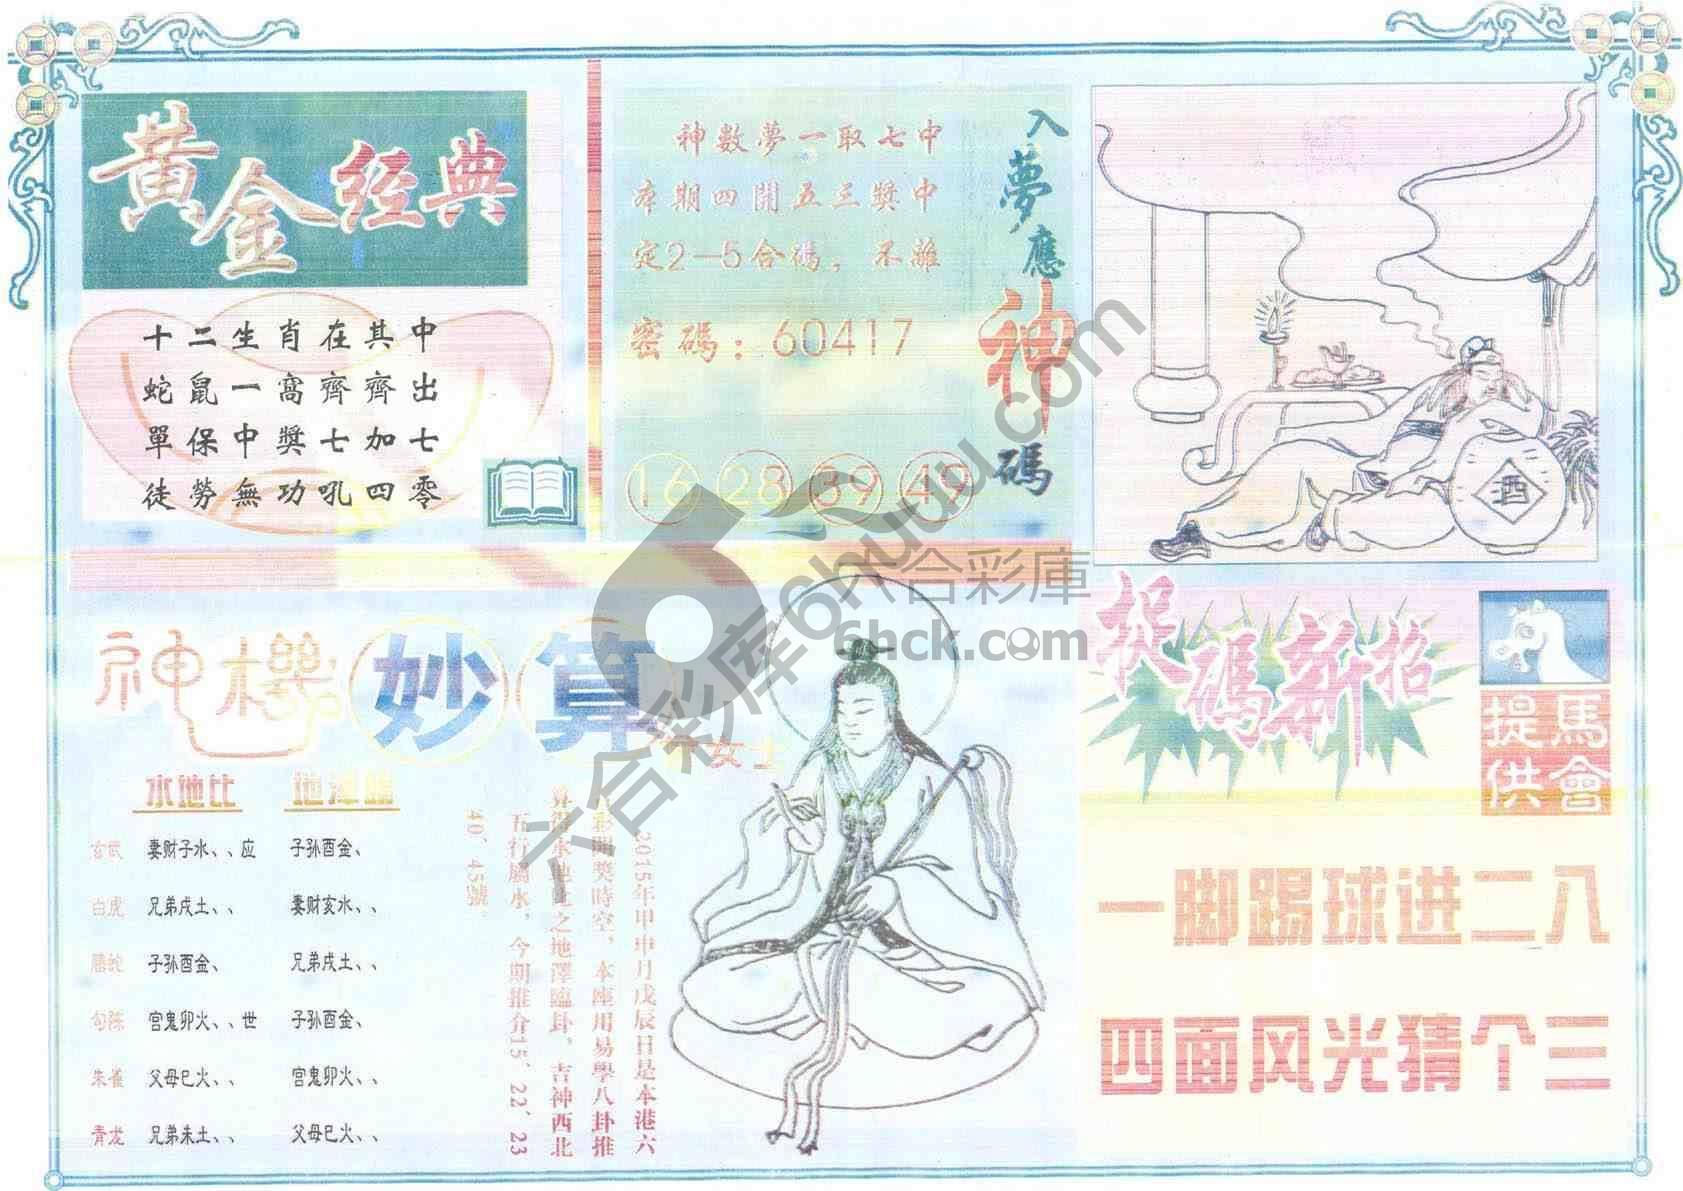 黄金经典
十二生肖在其中
蛇鼠一窩齊齊出
單保中獎七加七
徒勞無功吼四零
入夢應神碼
神數夢一取七中
本期四開五三獎中
定2—5合碼，不離
密碼：60417
16 28 39 49
酒
神機妙算
女士
水地比 地澤臨
玄武 妻财子水、、应 子孙酉金、
白虎 兄弟戌土、、 妻财亥水、、
螣蛇 子孙酉金、 兄弟戌土、、
勾陈 官鬼卯火、、世 子孙酉金、
朱雀 父母巳火、、 官鬼卯火、、
青龙 兄弟未土、、 父母巳火、、
2015年甲申月戊辰日是本港六
彩開獎時空，本座用易學八卦推
算得水地比之地澤臨卦，吉神西北
五行屬水，今期推介15、22、23
40、45號。
捉碼新招
馬會提供
一脚踢球进二八
四面风光猜个三
六合彩庫
6hck.com
六合彩库6huuu.com